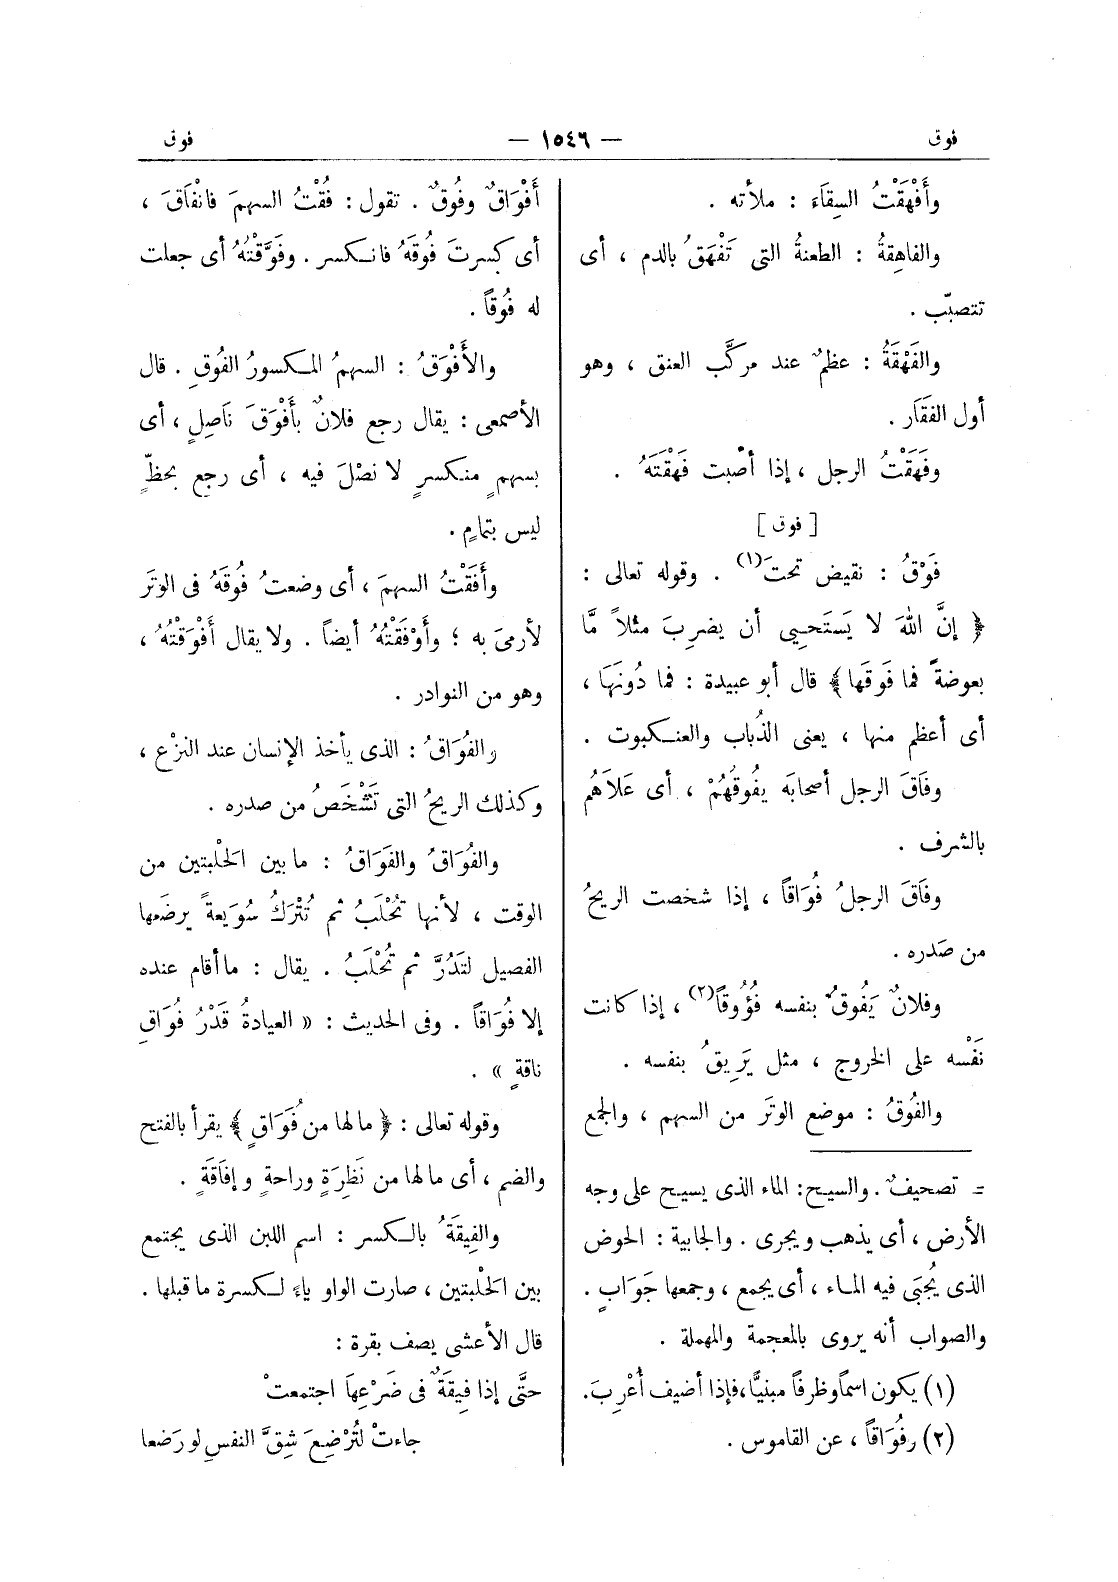 فوق — ١٥٤٦ — فوق
وأَفْهَقْتُ السِقَاءَ : ملأته .
والفاهِقةُ : الطعنةُ التى تَفْهَقُ بالدم ، أى
تتصبّب .
والفَهْقَةُ : عظمٌ عند مركَّب العنق ، وهو
أول الفَقَار .
وفَهَقْتُ الرجل ، إذا أصْبت فَهْقَتَهُ .
[ فوق ]
فَوْقُ : نقيض تحتَ(١) . وقوله تعالى :
﴿ إنَّ اللهَ لا يَستَحيِى أن يضرِبَ مثلاً مَّا
بعوضةً فما فَوقَها﴾ قال أبو عبيدة : فما دُونَهَا ،
أى أعظم منها ، يعنى الذُباب والعنكبوت .
وفَاقَ الرجل أصحابَه يفُوقُهُمْ ، أى عَلاَهُم
بالشرف .
وفَاقَ الرجلُ فُوَاقاً ، إذا شخصت الريحُ
من صَدره .
وفلانٌ يَفُوقُ بنفسه فُؤُوقاً(٢) ، إذا كانت
نَفْسه على الخروج ، مثل يَرِيقُ بنفسه .
والفُوقُ : موضع الوتَر من السهم ، والجمع
= تصحيفٌ . والسيح : الماء الذى يسيح على وجه
الأرض ، أى يذهب ويجرى . والجابية : الحوض
الذى يُجبَى فيه الماء ، أى يجمع ، وجمعها جَوَابٍ .
والصواب أنه يروى بالمعجمة والمهملة .
(١) يكون اسماً وظرفاً مبنيًّا، فإذا أضيف أُعْرِبَ.
(٢) رفُوَاقاً ، عن القاموس .
أَفْوَاقٌ وفُوقٌ . تقول : فُقْتُ السهمَ فانْفَاقَ ،
أى كسرتَ فُوقَهُ فانكسر . وفَوَّقْتُهُ أى جعلت
له فُوقاً .
والأَفْوَقُ : السهمُ المكسورُ الفُوقِ . قال
الأصمعى : يقال رجع فلانٌ بأَفْوَقَ نَاصِلٍ ، أى
بسهمٍ منكسرٍ لا نصْلَ فيه ، أى رجع بحظٍّ
ليس بتمامٍ .
وأَفَقْتُ السهمَ ، أى وضعتُ فُوقَهُ فى الوتَر
لأرمىَ به ؛ وأَوْفَقْتُهُ أيضاً . ولا يقال أَفْوَقْتُهُ ،
وهو من النوادر .
والفُوَاقُ : الذى يأخذ الإنسان عند النزْع ،
وكذلك الريحُ التى تَشْخَصُ من صدره .
والفُوَاقُ والفَوَاقُ : ما بين الحَلْبتين من
الوقت ، لأنها تُحْلَبُ ثم تُتْرَكُ سُوَيعةً يرضَعها
الفصيل لتَدُرَّ ثم تُحْلَبُ . يقال : ما أقام عنده
إلا فُوَاقاً . وفى الحديث : « العيادةُ قَدْرُ فُوَاقِ
ناقةٍ » .
وقوله تعالى : ﴿ ما لها من فُوَاقٍ ﴾ يقرأ بالفتح
والضم ، أى ما لها من نَظِرَةٍ وراحةٍ وإفَاقَةٍ .
والفِيقَةُ بالكسر : اسم اللبن الذى يجتمع
بين الحَلْبتين ، صارت الواو ياءً لكسرة ما قبلها .
قال الأعشى يصف بقرة :
حتَّى إذا فِيقَةٌ فى ضَرْعِهَا اجتمعتْ
جاءتْ لتُرْضِعَ شِقَّ النفسِ لو رَضَعا